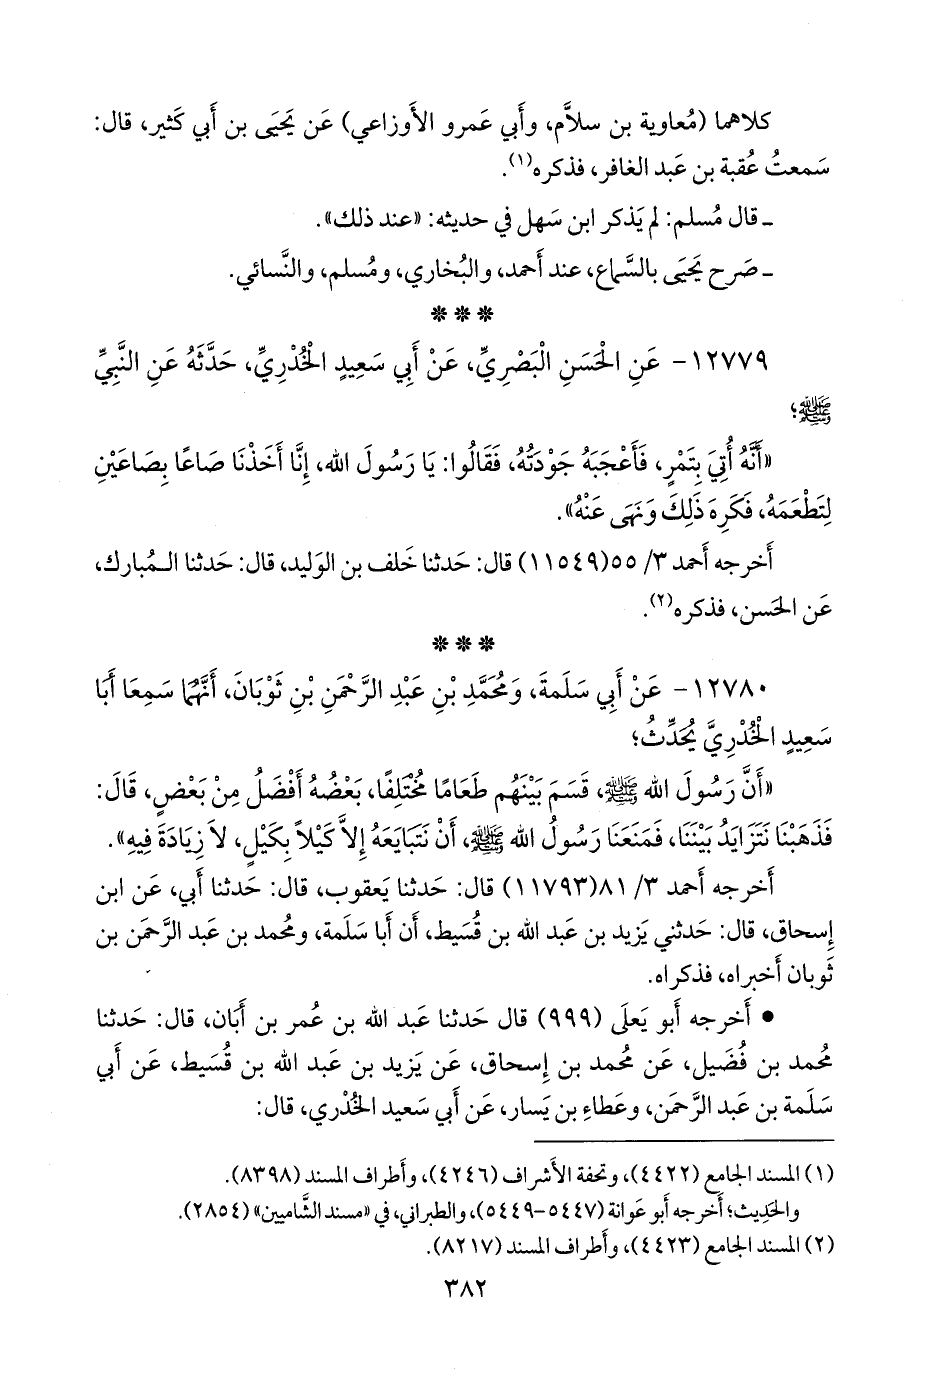 كلاهما (مُعاوية بن سلاَّم، وأَبي عَمرو الأَوزاعي) عَن يَحيَى بن أَبي كَثير، قال:
سَمعتُ عُقبة بن عَبد الغافر، فذكره(١).
ـ قال مُسلم: لم يَذكر ابن سَهل في حديثه: «عند ذلك».
ـ صَرح يَحيَى بالسَّماع، عند أَحمد، والبُخاري، ومُسلم، والنَّسائي.
* * *
١٢٧٧٩ - عَنِ الْحَسَنِ الْبَصْرِيِّ، عَنْ أَبِي سَعِيدٍ الْخُدْرِيِّ، حَدَّثَهُ عَنِ النَّبِيِّ
ﷺ؛
«أَنَّهُ أُتِيَ بِتَمْرٍ، فَأَعْجَبَهُ جَوْدَتُهُ، فَقَالُوا: يَا رَسُولَ الله، إِنَّا أَخَذْنَا صَاعًا بِصَاعَيْنِ
لِتَطْعَمَهُ، فَكَرِهَ ذَلِكَ وَنَهَى عَنْهُ».
أَخرجه أَحمد ٣/ ٥٥(١١٥٤٩) قال: حَدثنا خَلف بن الوَليد، قال: حَدثنا الـمُبارك،
عَن الحَسن، فذكره(٢).
* * *
١٢٧٨٠ - عَنْ أَبِي سَلَمَةَ، وَمُحَمَّدِ بْنِ عَبْدِ الرَّحْمَنِ بْنِ ثَوْبَانَ، أَنَّهُمَا سَمِعَا أَبَا
سَعِيدٍ الْخُدْرِيَّ يُحَدِّثُ؛
«أَنَّ رَسُولَ الله ﷺ، قَسَمَ بَيْنَهُم طَعَامًا مُخْتَلِفًا، بَعْضُهُ أَفْضَلُ مِنْ بَعْضٍ، قَالَ:
فَذَهَبْنَا نَتَزَايَدُ بَيْنَنَا، فَمَنَعَنَا رَسُولُ الله ﷺ، أَنْ نَتَبَايَعَهُ إِلاَّ كَيْلاً بِكَيْلٍ، لاَ زِيَادَةَ فِيهِ».
أَخرجه أَحمد ٣/ ٨١(١١٧٩٣) قال: حَدثنا يَعقوب، قال: حَدثنا أَبي، عَن ابن
إِسحاق، قال: حَدثني يَزيد بن عَبد الله بن قُسَيط، أَن أَبا سَلَمة، ومُحمد بن عَبد الرَّحمَن بن
ثَوبان أَخبراه، فذكراه.
• أَخرجه أَبو يَعلَى (٩٩٩) قال حَدثنا عَبد الله بن عُمر بن أَبَان، قال: حَدثنا
مُحمد بن فُضَيل، عَن مُحمد بن إِسحاق، عَن يَزيد بن عَبد الله بن قُسَيط، عَن أَبي
سَلَمة بن عَبد الرَّحمَن، وعَطاءِ بن يَسار، عَن أَبي سَعيد الخُدْري، قال:
(١) المسند الجامع (٤٤٢٢)، وتحفة الأَشراف (٤٢٤٦)، وأَطراف المسند (٨٣٩٨).
والحَدِيث؛ أَخرجه أَبو عَوانة (٥٤٤٧-٥٤٤٩)، والطبراني، في «مسند الشَّاميين» (٢٨٥٤).
(٢) المسند الجامع (٤٤٢٣)، وأَطراف المسند (٨٢١٧).
٣٨٢